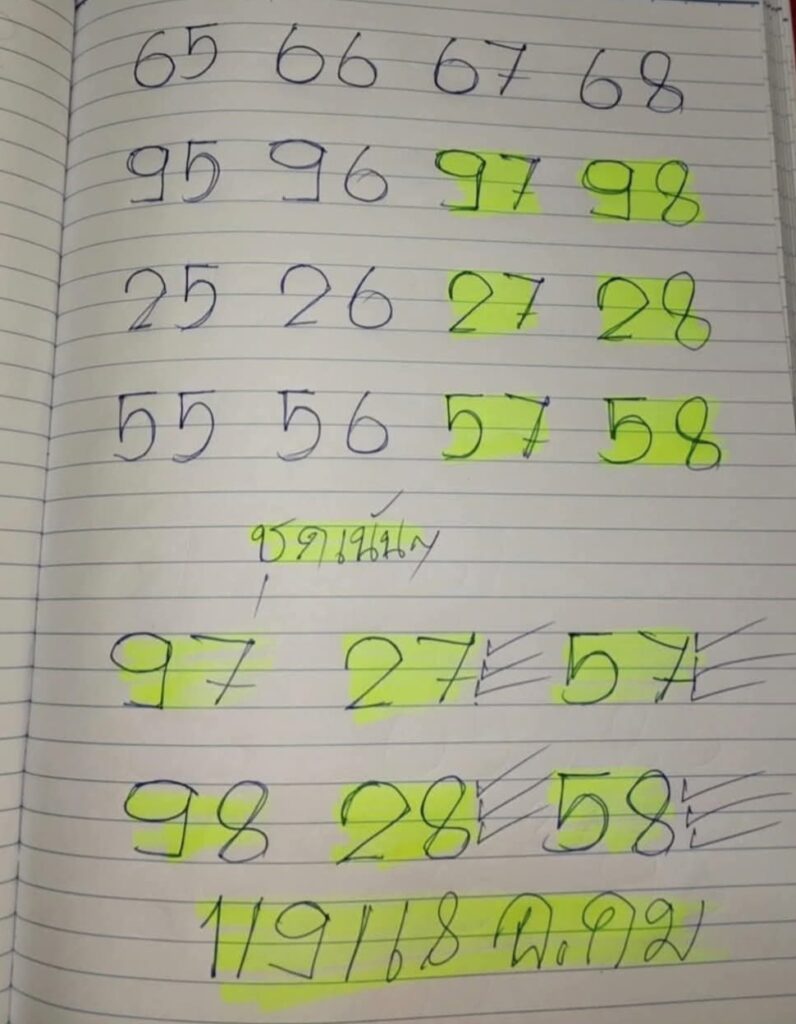 65 66 67 68
95 96 97 98
25 26 27 28
55 56 57 58
ชุดเน้นๆ
97 27 57
98 28 58